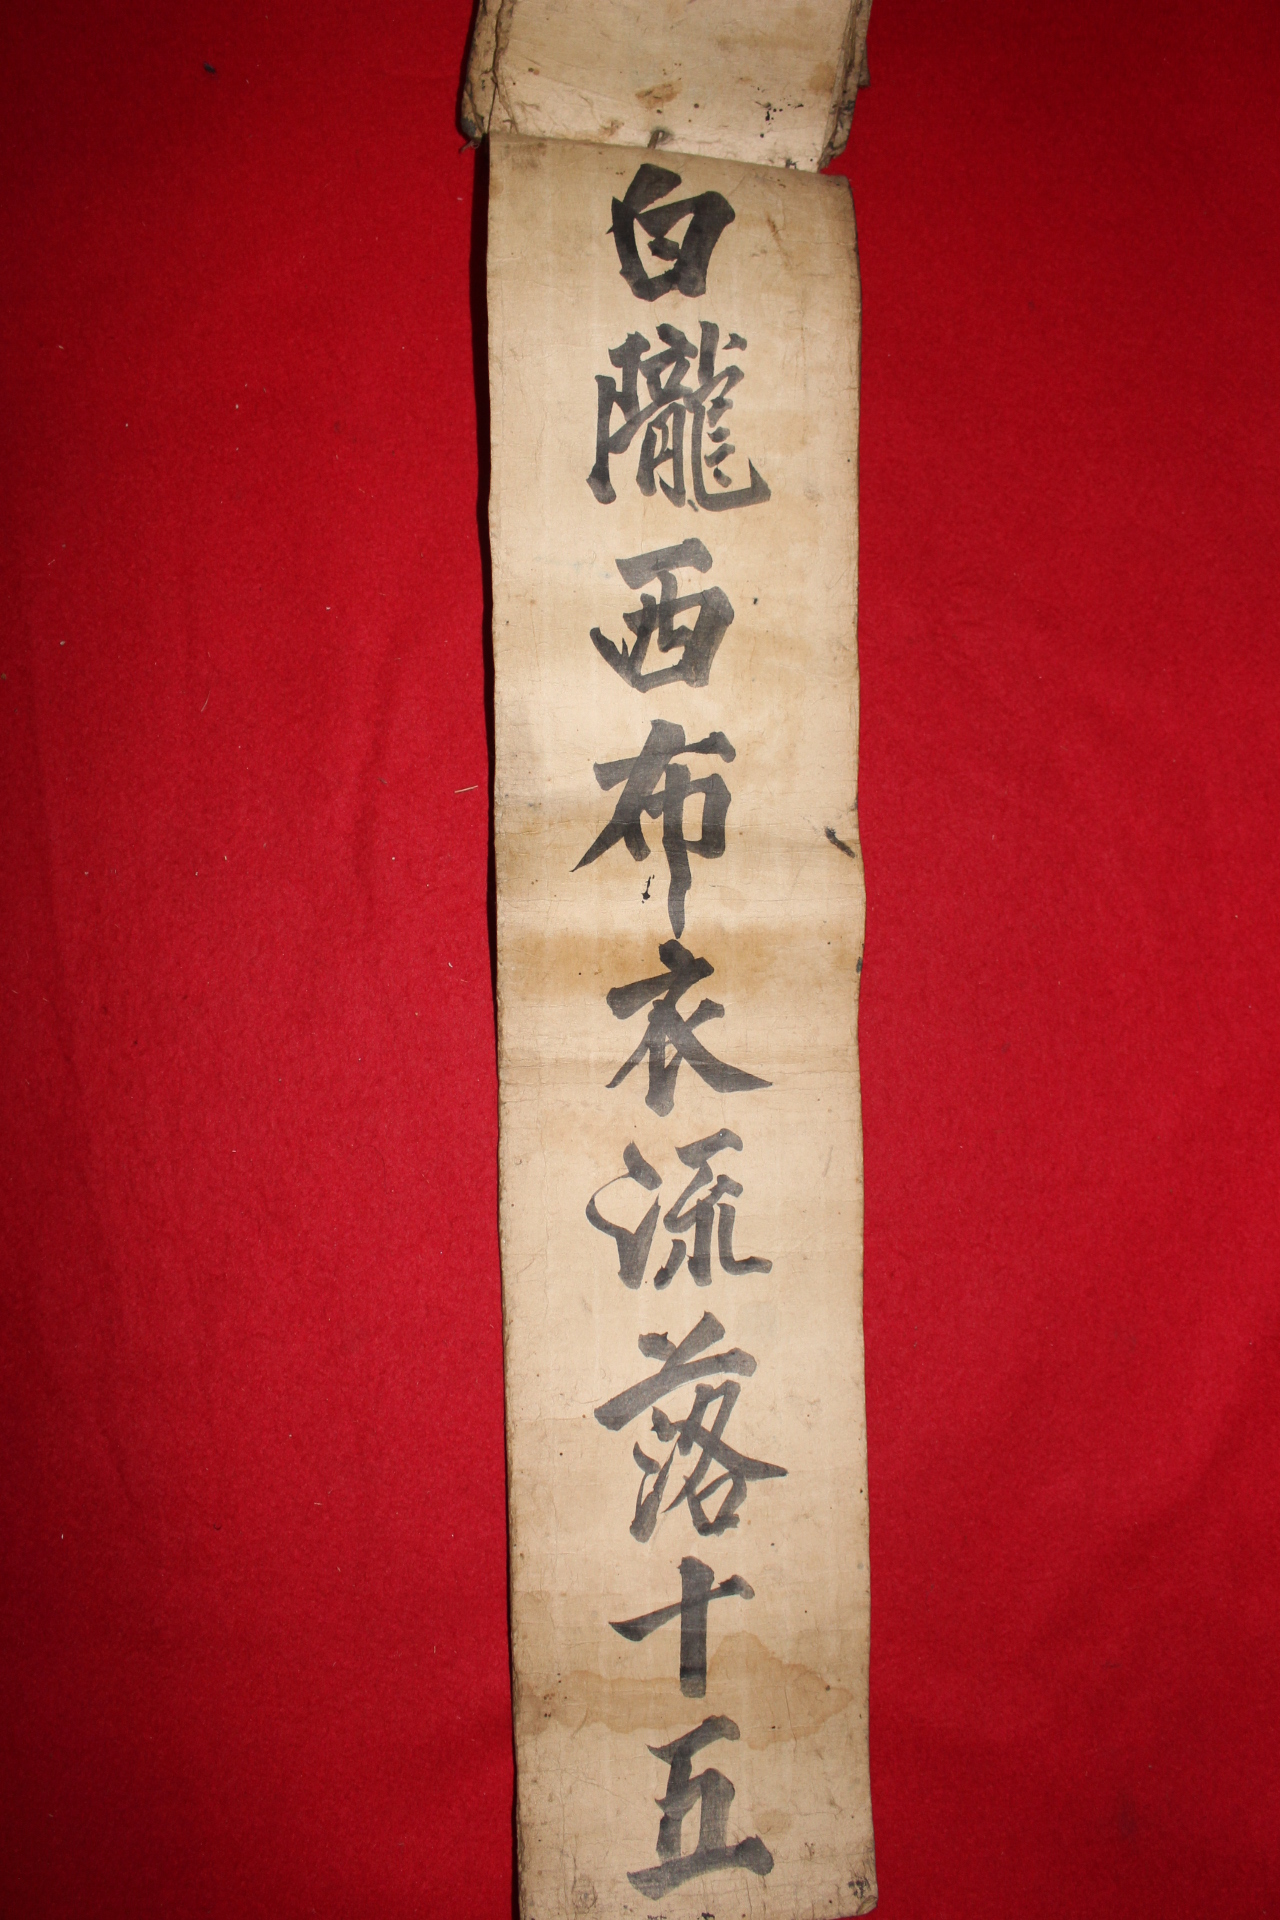 白隴西布衣流落十五